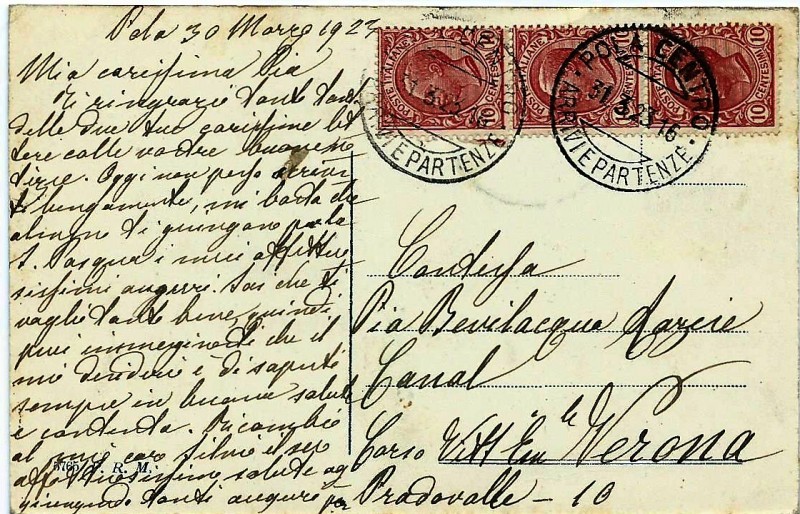 Pola 30 Marzo 1923
Mia carissima Pia
Ti ringrazio tante tante
delle due tue carissime let
tere colle vostre buone no
tizie. Oggi non posso scriver
ti lungamente, mi basta che
almeno ti giungano per la
S. Pasqua i miei affettuo
sissimi auguri. Sai che ti
voglio tanto bene, quindi
puoi immaginarti che il
mio desiderio è di saperti
sempre in buona salute
e contenta. Ricambio
al mio caro Silvio il suo
affettuosissimo saluto ag
giungendo tanti auguri per
5765 P. R. M.
POSTE ITALIANE
10 CENTESIMI 10
POSTE ITALIANE
10 CENTESIMI 10
POSTE ITALIANE
10 CENTESIMI 10
ARRIVI E PARTENZE
POLA CENTRO
31.3.23.16
ARRIVI E PARTENZE
Contessa
Pia Bevilacqua
Canal
Corso Vitt Em le
Verona
Pradovalle - 10